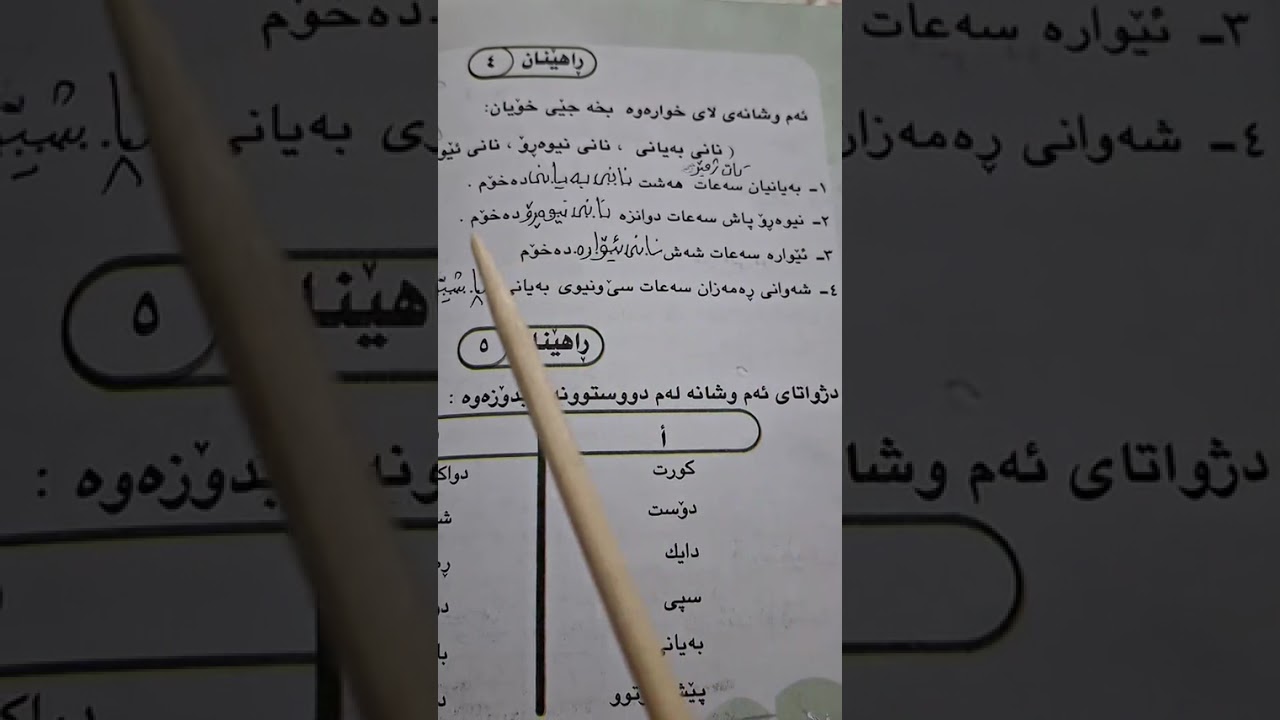 راهێنان ٤
ئەم وشانەی لای خوارەوە بخە جێی خۆیان:
( نانی بەیانی ، نانی نیوەڕۆ ، نانی ئێو
١- بەیانیان سەعات هەشت نانی بەیانی دەخۆم .
٢- نیوەڕۆ پاش سەعات دوانزە نانی نیوەڕۆ دەخۆم .
٣- ئێوارە سەعات شەش نانی ئێوارە دەخۆم
٤- شەوانی ڕەمەزان سەعات سێ ونیوی بەیانی
ڕاهێنا ٥
دژواتای ئەم وشانە لەم دووستوونە بدۆزەوە :
أ
کورت
دواک
دۆست
شـ
دایك
سپی
بەیانی
پێش وتوو